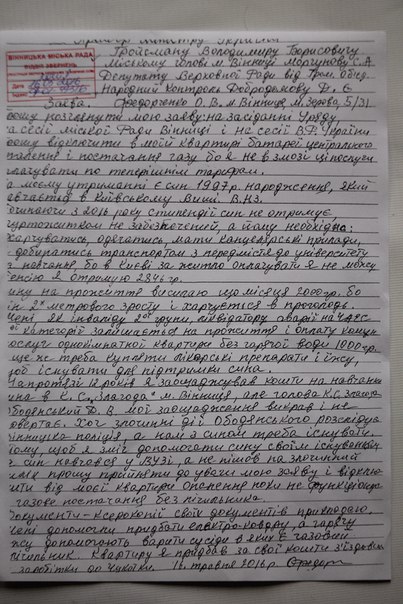 Прем'єр Міністру України
ВІННИЦЬКА МІСЬКА РАДА
ВІДДІЛ ЗВЕРНЕНЬ
Дата
Гройсману Володимиру Борисовичу
Міському голові м. Вінниці Моргунову С.А.
Депутату Верховної Ради від Гром. обєд.
Народний контроль Добродомову Д. Є
Заява. Федорченко О.В. м Вінниця, м. Зерова, 5/31.
розглянути мою заяву на засіданні Уряду,
на сесії міської Ради Вінниці і на сесії В.Р. України
відключити в моїй квартирі батареї центрального
опалення і постачання газу бо я не в змозі ці послуги
оплачувати по теперішнім тарифам.
На моєму утриманні є син 1997 р. народження, який
навчається в Київському Вищ. В.Н.З.
з 2016 року стипендії син не отримує,
гуртожитком не забезпечений, а йому необхідно:
харчуватись, одягатись, мати канцелярські прилади,
добиратись транспортом з передмістя до університету
навчання бо в Києві за житло оплачувати я не можу
пенсію я отримую 2846 гр.
на прожиття висилаю що місяця 2000 гр. бо
він 2х метрового зросту і харчується в проголодь.
Мені як інваліду 2ої групи, ліквідатору аварії на ЧАЕС
категорії залишається на прожиття і оплату комун.
послуг однокімнатної квартири без гарячої води 1000 гр.
ще же треба купляти лікарські препарати і їжу,
щоб існувати для підтримки сина.
На протязі 12 років я заощаджував кошти на навчання
сина в К.С. „Злагода" м. Вінниця, але голова К.С. Злагода
Ободянський Д.В. мої заощадження викрав і не
повертає. Хоч злочинні дії Ободянського розслідує
Вінницька поліція, а нам з сином треба існувати.
Тому, щоб я зміг допомогти сину своїм існуванням
син навчався у ВУЗі, а не пішов на злочинний
шлях прошу прийняти до уваги мою заяву і відклю-
чити від моєї квартири опалення поки не функціонує
газове постачання без лічильника.
Документи - ксерокопії своїх документів прикладаю.
Мені допомогли придбати електро-ковдру, а гарячу
їжу допомагають варити сусіди в яких є газовий
лічильник. Квартиру я придбав за свої кошти з'їздивши
заробітки до Чукотки. 16 травня 2016 р.